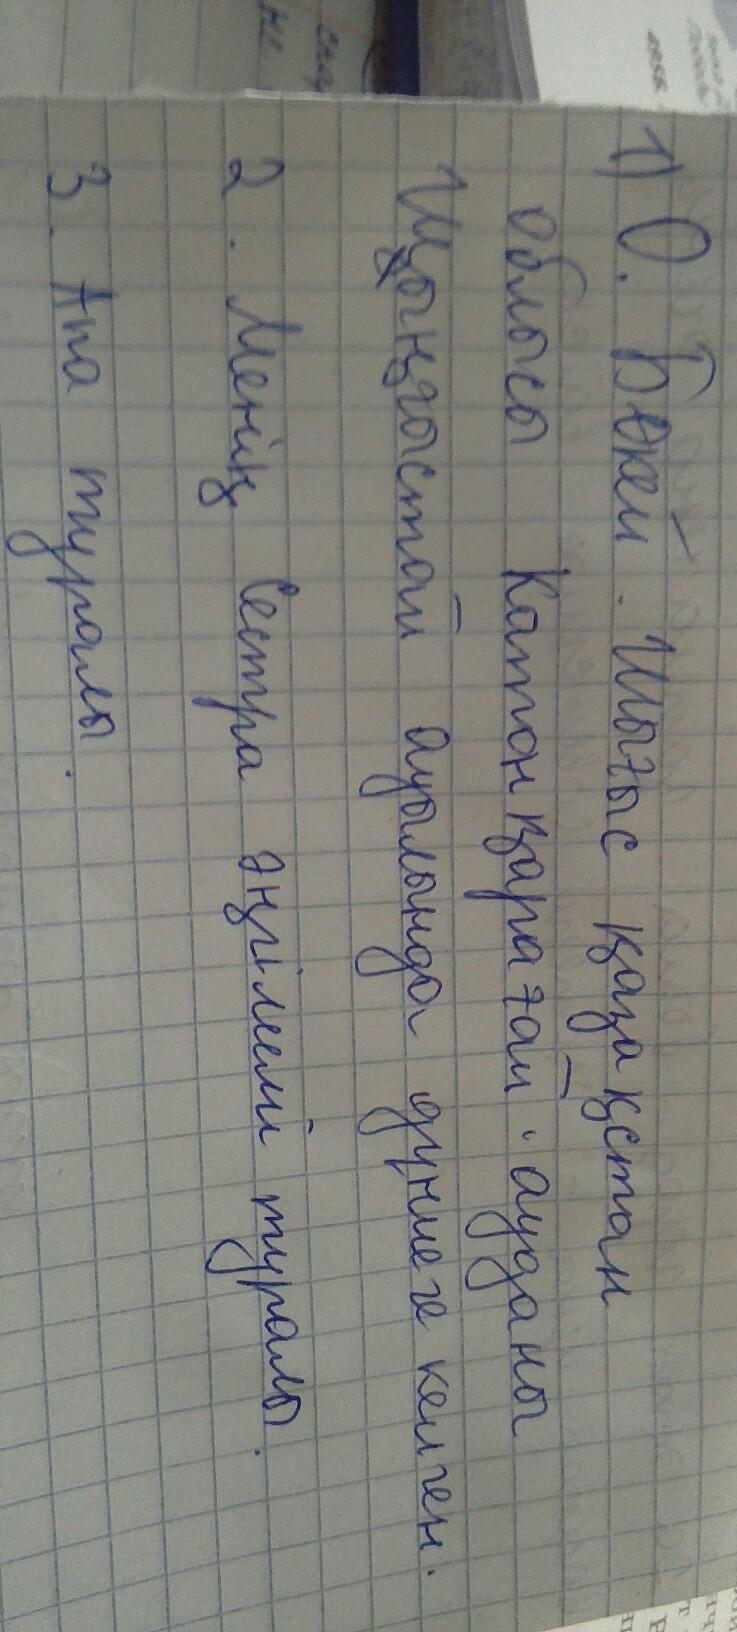 1) О. Бөкей. Шығыс қазақстан
облысы Катонқарағай ауданы
Шыңғыстай ауылында дүниеге келген.
2. Менің Сестра әңгімемі туралы.
3. Апа туралы.